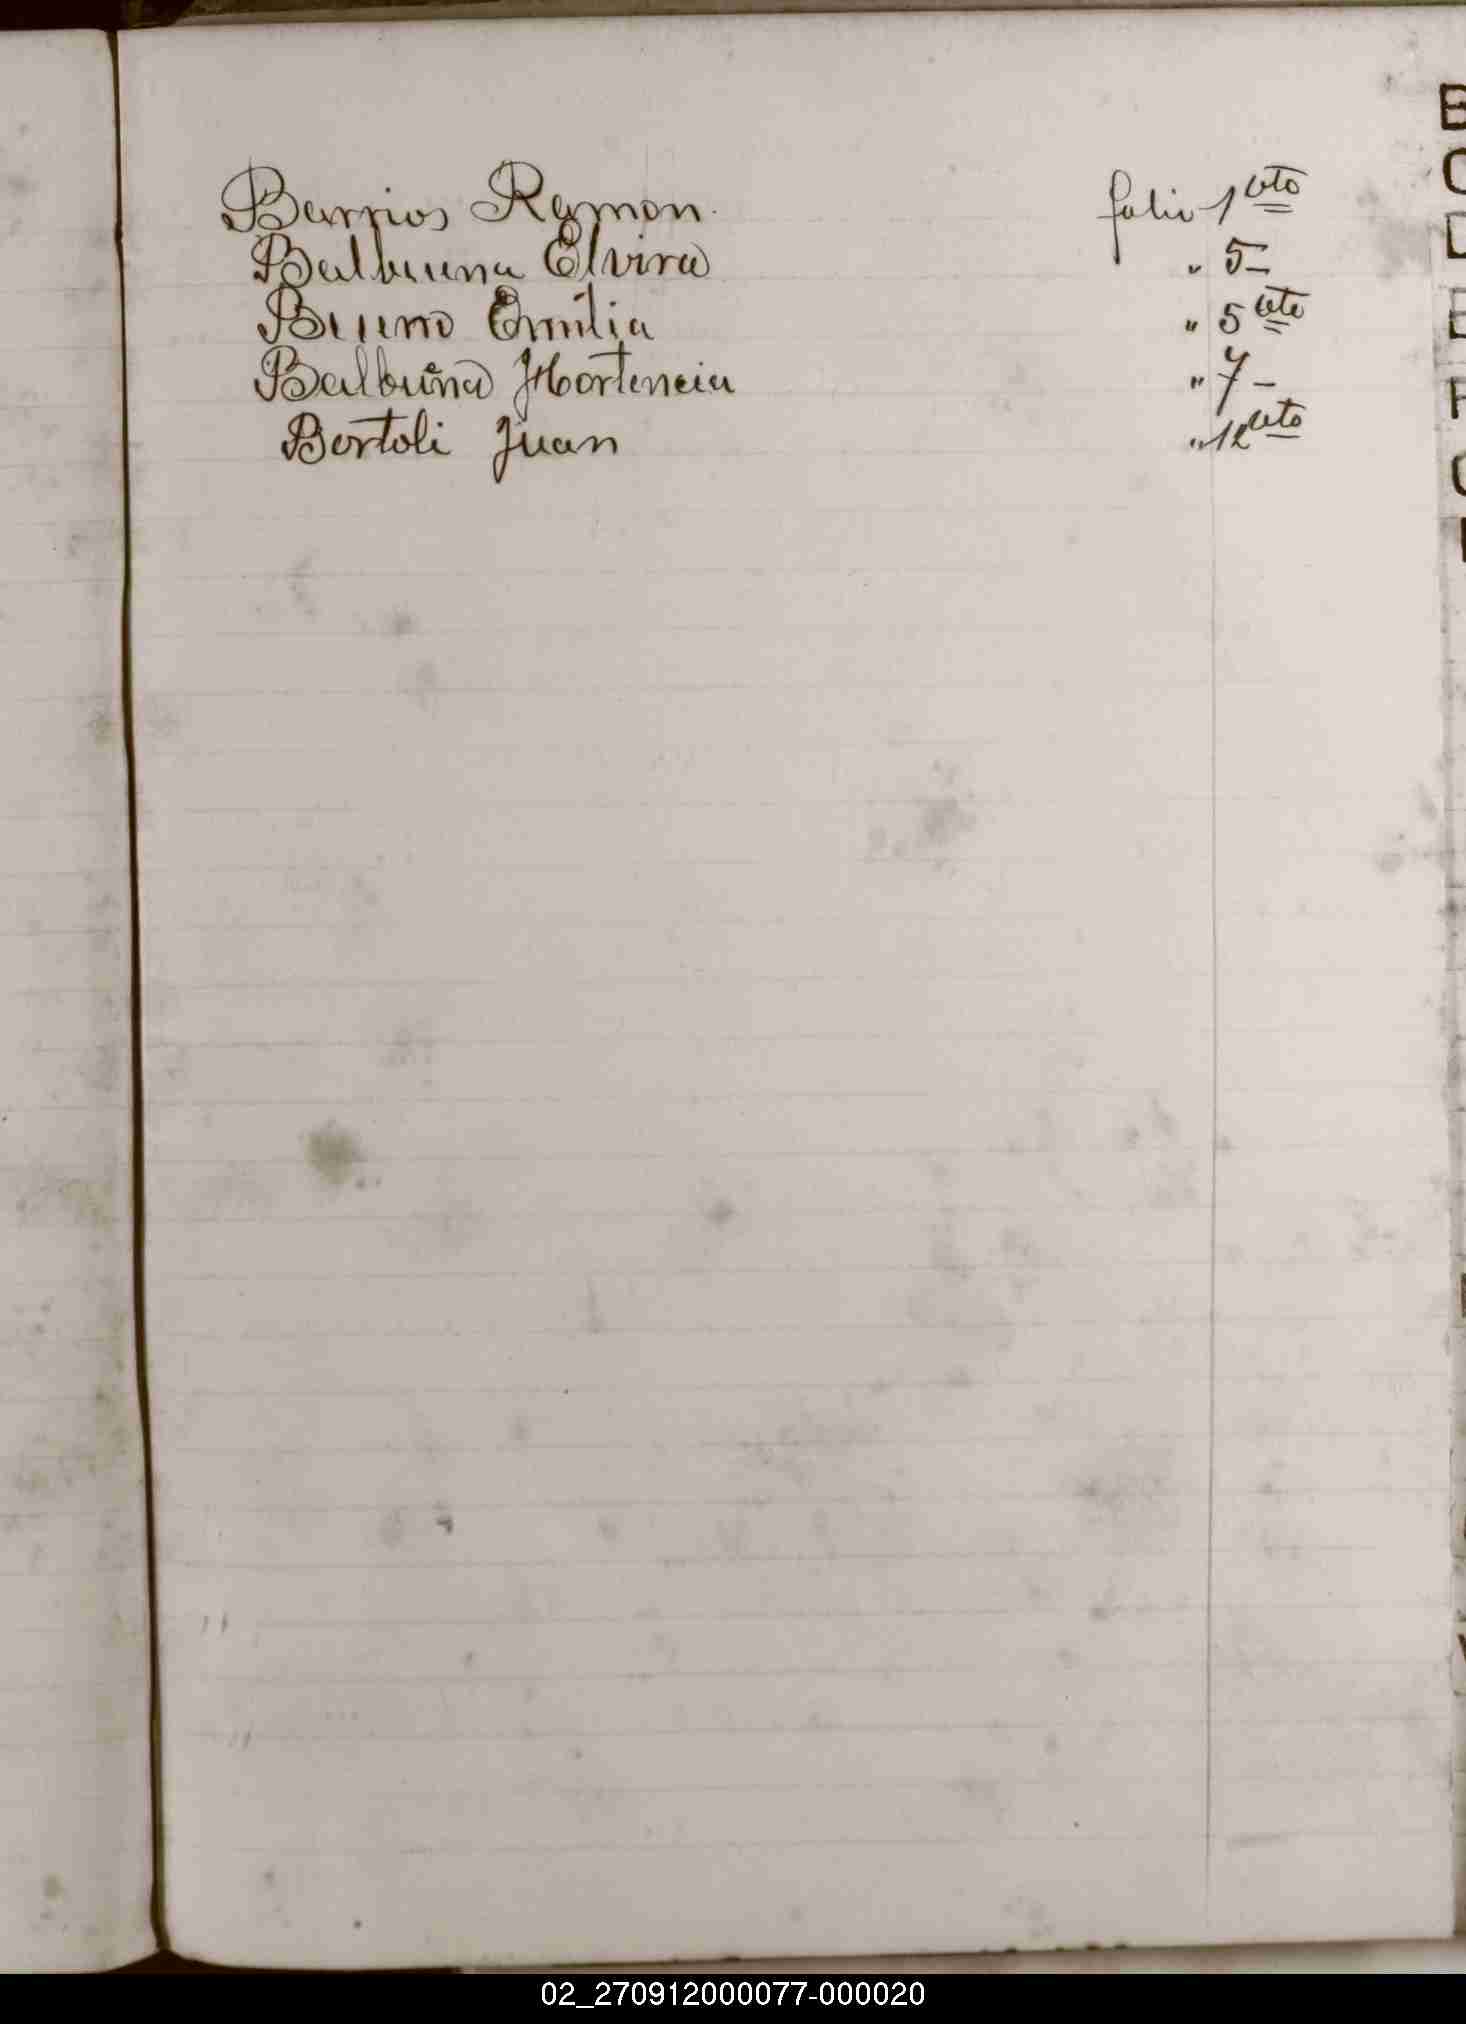 Barrios Ramon. folio 1 vto
Balbuena Elvira " 5-
Bueno Emilia " 5 vto
Balbuena Hortencia " 7-
Bortoli Juan " 12 vto
B
C
D
E
F
G
02_270912000077-000020